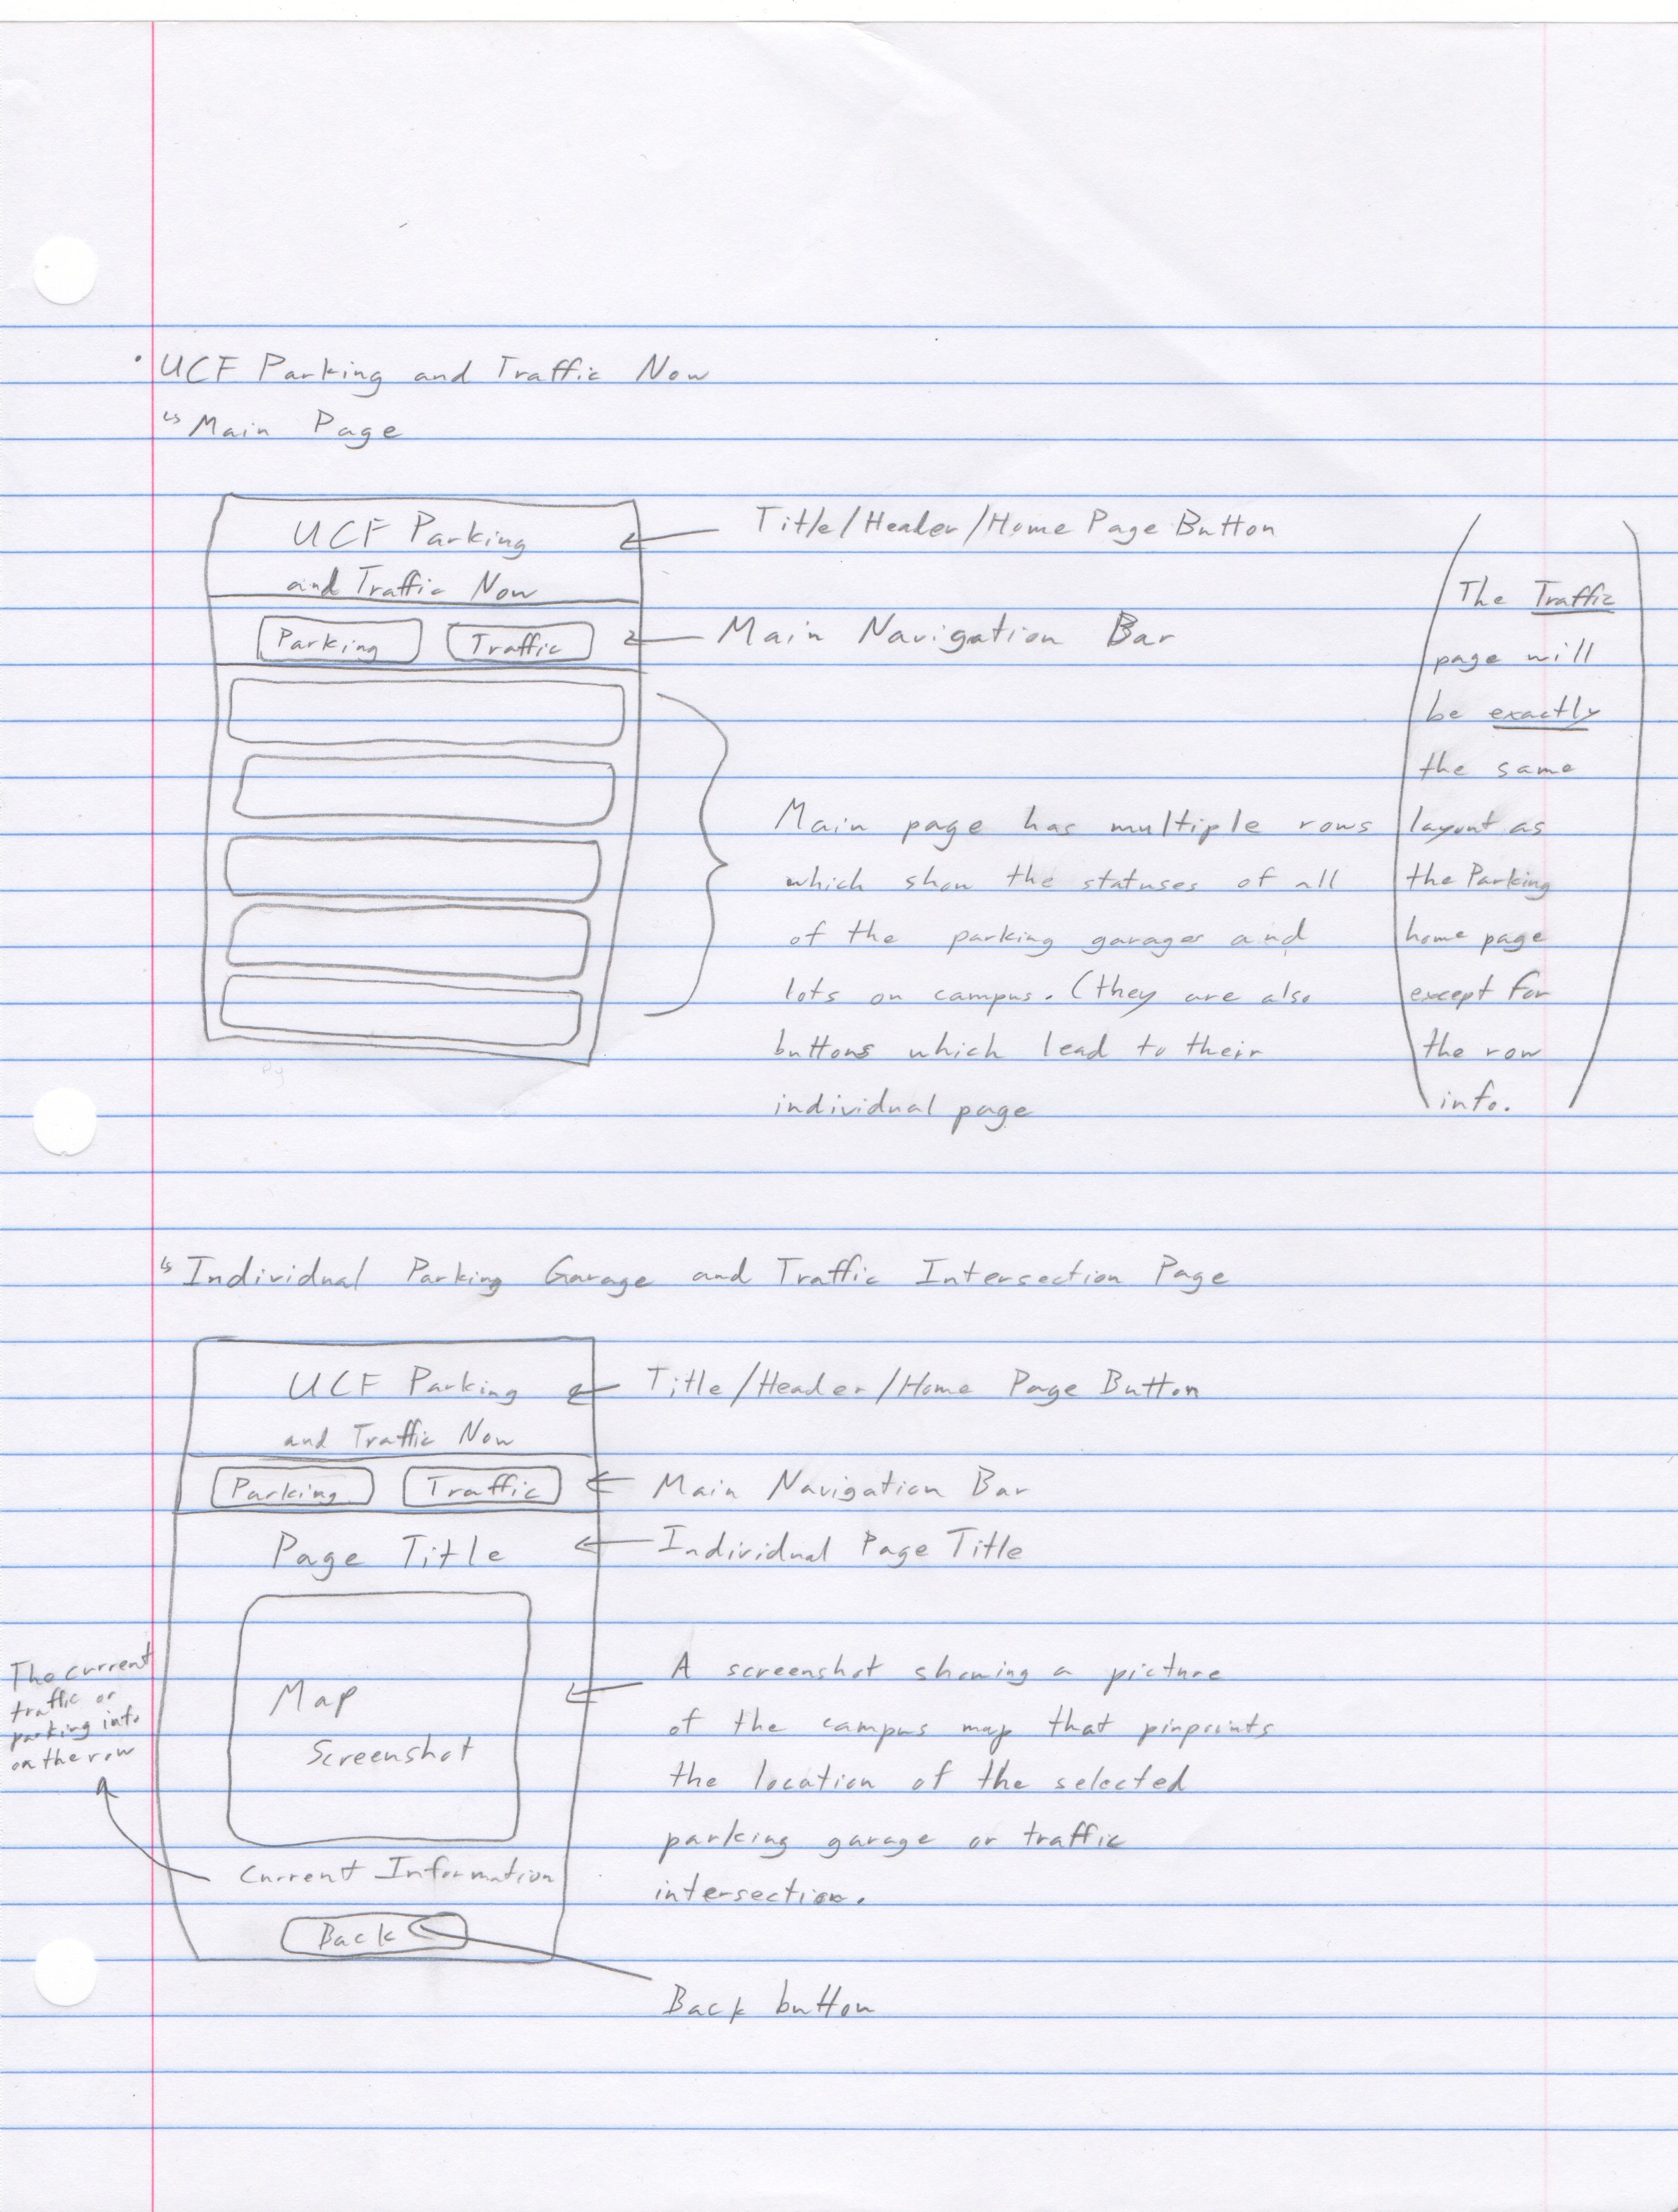 • UCF Parking and Traffic Now
↳ Main Page
UCF Parking
and Traffic Now
Title/Header/Home Page Button
Parking Traffic
Main Navigation Bar
Main page has multiple rows
which show the statuses of all
of the parking garages and
lots on campus. (they are also
buttons which lead to their
individual page
The Traffic
page will
be exactly
the same
layout as
the Parking
home page
except for
the row
info.
↳ Individual Parking Garage and Traffic Intersection Page
UCF Parking
and Traffic Now
Title/Header/Home Page Button
Parking Traffic
Main Navigation Bar
Page Title
Individual Page Title
Map
Screenshot
A screenshot showing a picture
of the campus map that pinpoints
the location of the selected
parking garage or traffic
intersection.
The current
traffic or
parking info
on the row
Current Information
Back
Back button